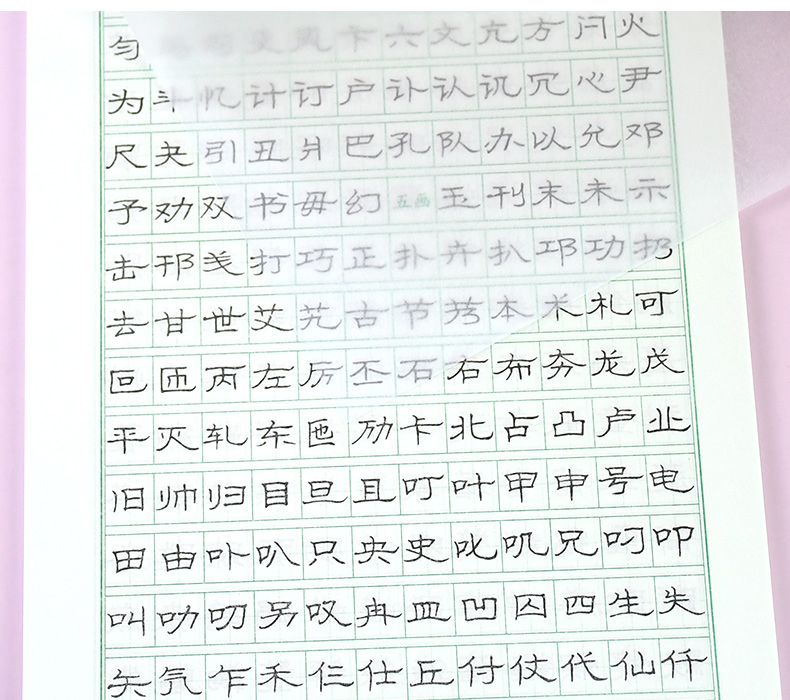 匀 卞六文亢方闩火
为斗忆计订户讣认讥冗心尹
尺夬引丑爿巴孔队办以允邓
予劝双书毋幻五画玉刊末未示
击邗戋打巧正扑卉扒邛功扔
去甘世艾艽古节艿本术札可
叵匝丙左厉丕石右布夯龙戊
平灭轧东匜劢卡北占凸卢业
旧帅归目旦且叮叶甲申号电
田由卟叭只央史叱叽兄叼叩
叫叻叨另叹冉皿凹囚四生失
矢气乍禾仨仕丘付仗代仙仟